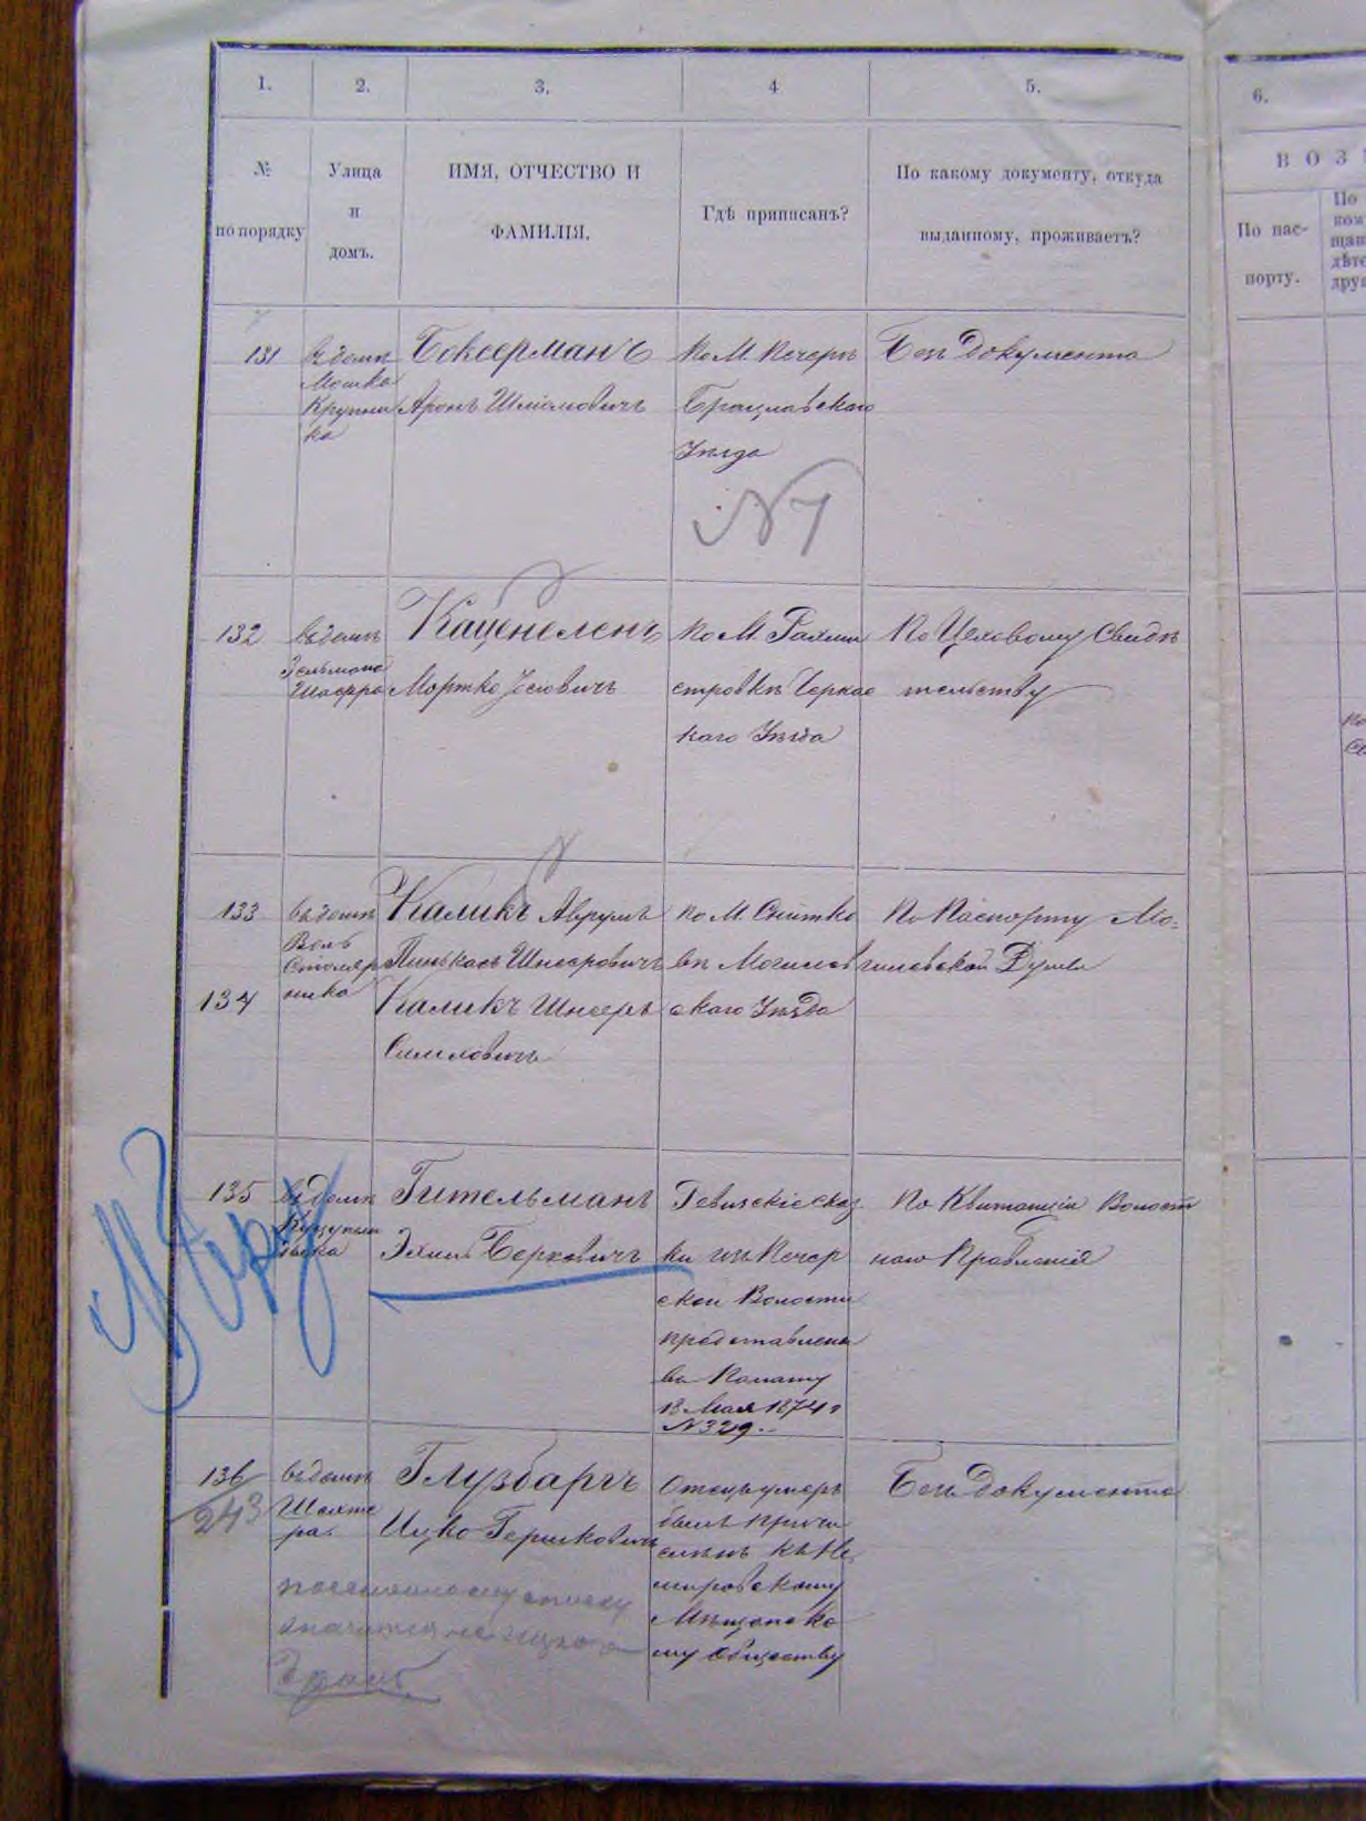 1. 2. 3. 4 5. 6.
№ по порядку
Улица и домъ.
ИМЯ, ОТЧЕСТВО И
ФАМИЛІЯ.
Гдѣ приписанъ?
По какому документу, откуда
выданному, проживаетъ?
В О З
По пас-
порту.
131
въ домѣ
Мошка
Крупни
ка
Боксерманъ
Аронъ Шлiомовичъ
По М. Печерѣ
Брацлавскаго
Уѣзда
N 7
Безъ Документа
132
въ домѣ
Зельмана
Шаефра
Каценеленъ
Мортко Iосiовичъ
По М. Рахми
стровкѣ Черкас
каго Уѣзда
По Цеховому Свидѣ
тельству
133
въ домѣ
Воль
Столяр
ника
Каликъ Аврумъ
Пинькасъ Шнееровичъ
134
Каликъ Шнееръ
по М. Снитко
вѣ Могилев
скаго Уѣзда
По Паспорту Мо-
гилевской Думы
135
въ домѣ
Гительманъ
Эхиль Берковичъ
Ревизскіе сказ
ки изъ Печер
ской Волости
представлены
въ Палату
13 Мая 1874 г
N 329.
По Квитанціи Волост
наго Правленія
136
243
въ домѣ
Шехте
ра.
Глузбаргъ
Ицко Гершковичъ
Отецъ умеръ
былъ причи
сленъ къ Не
мировскому
Мѣщанско
му Обществу
Безъ Документа
по семейному списку
значится не Ицко а